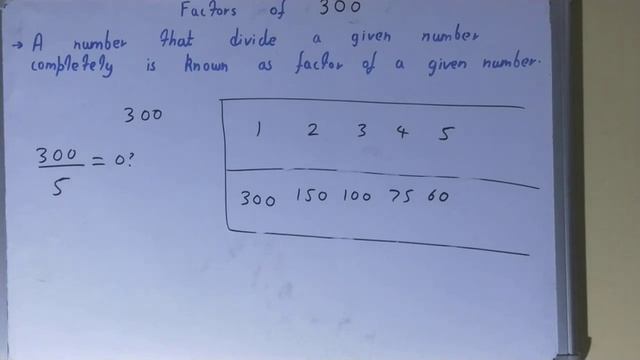 Factors of 300
→ A number that divide a given number
completely is known as factor of a given number.
300
300/5 = 0?
1 2 3 4 5
300 150 100 75 60